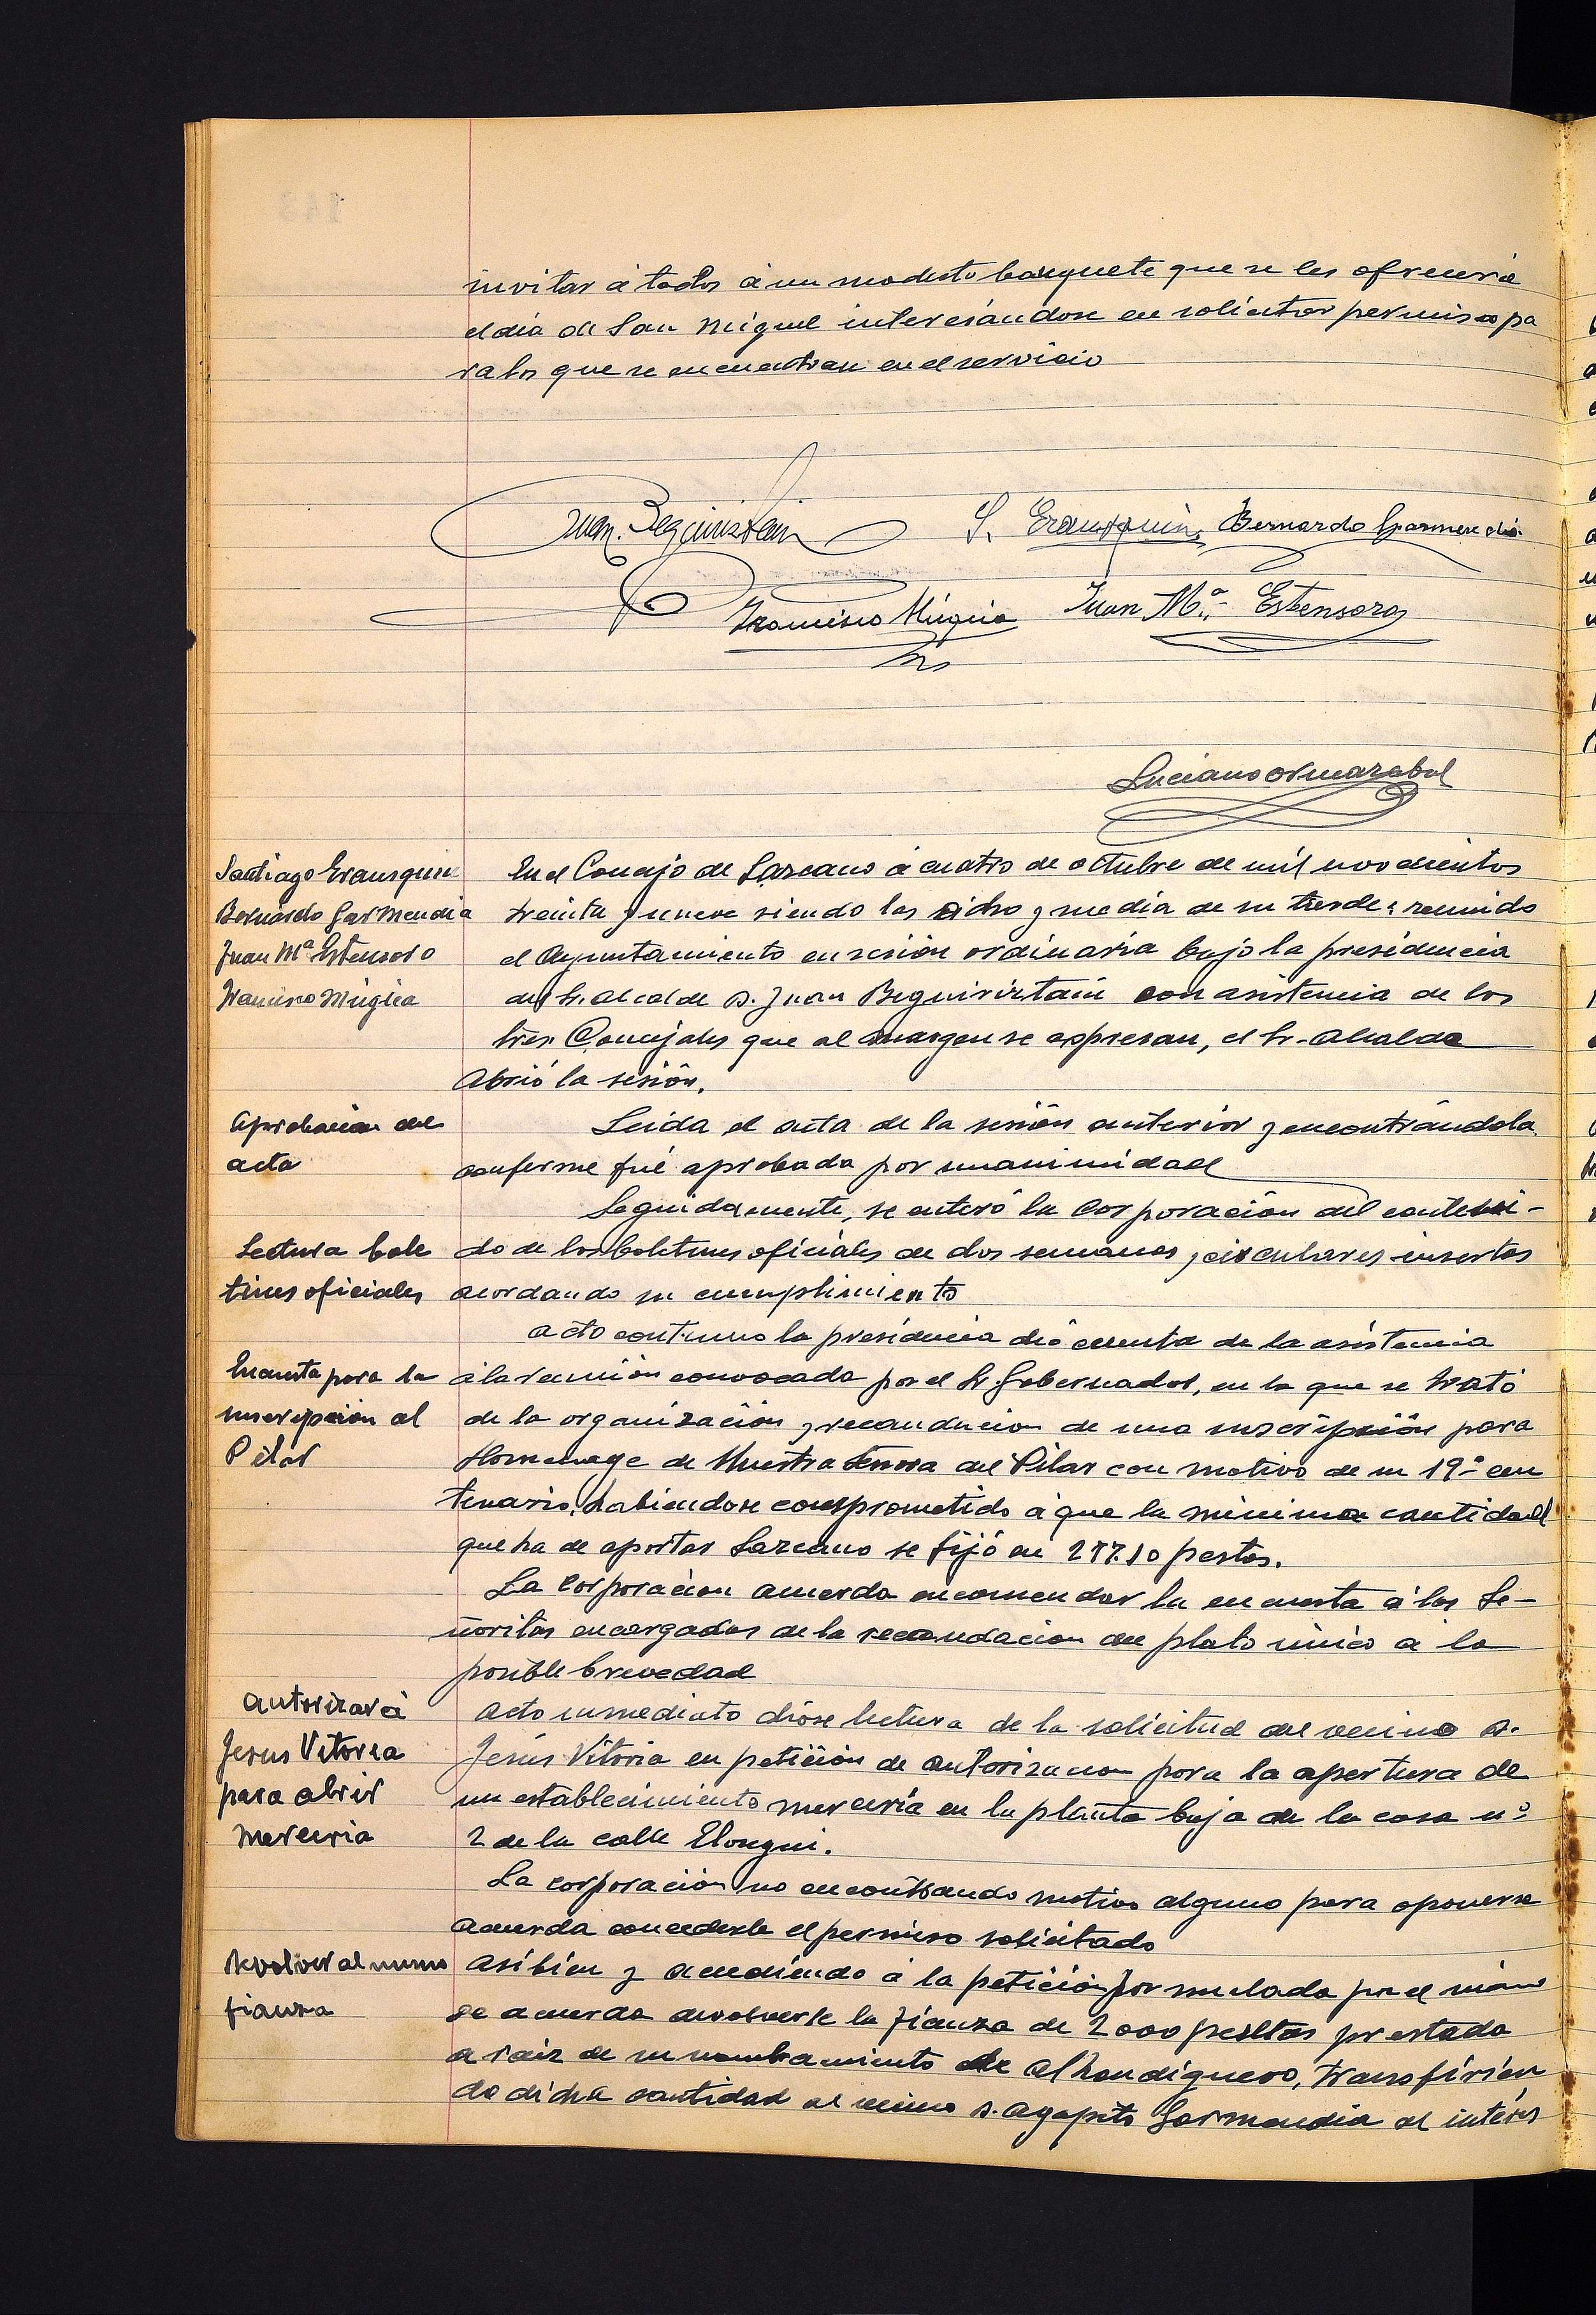 invitar á todos á un modesto banquete que se les ofrecería
el día de San Miguel interesándose en solicitar permiso pa
ra los que se encuentran en el servicio
Juan Beguiristain
S. Erausquin
Bernardo Garmendia
Francisco Múgica
Juan Mª Estensoro
Luciano Ormazabal
Santiago Erausquin
Bernardo Garmendia
Juan Mª Estensoro
Francisco Múgica
En el Concejo de Lazcano á cuatro de octubre de mil novecientos
treinta y nueve siendo las ocho y media de su tarde: reunido
el Ayuntamiento en sesión ordinaria bajo la presidencia
del Sr. Alcalde D. Juan Beguiristain con asistencia de los
tres Concejales que al margen se expresan, el Sr. Alcalde
abrió la sesión.
Aprobación del
acta
Leida el acta de la sesión anterior y encontrándola
conforme fué aprobada por unanimidad
Seguidamente, se enteró la Corporación del conteni-
Lectura bole
tines oficiales
do de los boletines oficiales de dos semanas y circulares insertas
acordando su cumplimiento
Acto contínuo la presidencia dió cuenta de la asistencia
Encuesta para la
suscripción al
Pilar
á la reunión convocada por el Sr. Gobernador, en la que se trató
de la organización y recaudacion de una suscripción para
Homenage de Nuestra Señora del Pilar con motivo de su 19º cen
tenario, habiendose comprometido á que la mínima cantidad
que ha de aportar Lazcano se fijó en 277.10 pesetas.
La Corporacion acuerda encomendar la encuesta á las Se-
ñoritas encargadas de la recaudacion del plato único á la
posible brevedad
Autorizar á
Jesus Vitoria
para abrir
merceria
Acto inmediato dióse lectura de la solicitud del vecino D.
Jesús Vitoria en petición de autorizacion para la apertura de
un establecimiento mercería en la planta baja de la casa nº
2 de la calle Elosegui.
La corporación no encontrando motivo alguno para oponerse
acuerda concederle el permiso solicitado
Devolver al mismo
fianza
Asi bien y accediendo á la petición formulada por el mismo
se acuerda devolverle la fianza de 2000 pesetas prestada
a raiz de su nombramiento de alhondiguero, transfirien
do dicha cantidad al vecino D. Agapito Garmendia al interés